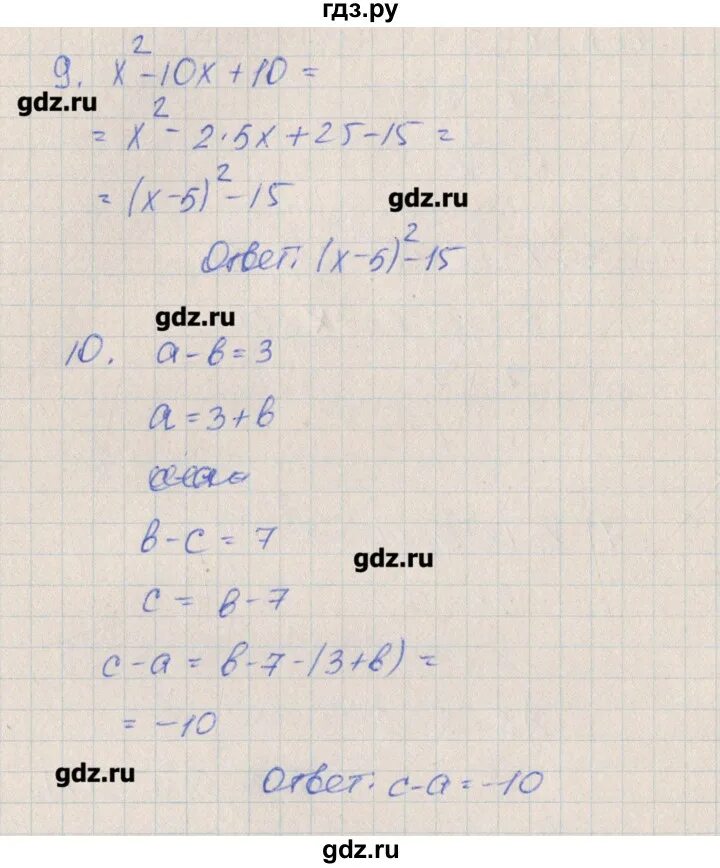 гдз.ру
9. x² - 10x + 10 =
gdz.ru
= x² - 2·5x + 25 - 15 =
= (x - 5)² - 15
gdz.ru
Ответ: (x - 5)² - 15
gdz.ru
10. a - b = 3
a = 3 + b
b - c = 7
gdz.ru
c = b - 7
c - a = b - 7 - (3 + b) =
= -10
gdz.ru
Ответ: c - a = -10
гдз.ру